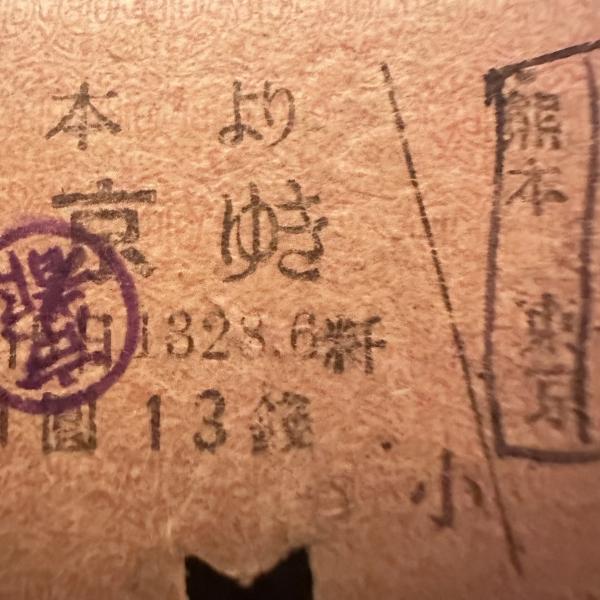 本より
京ゆき
1328.6粁
圓13錢
小
熊本
東京